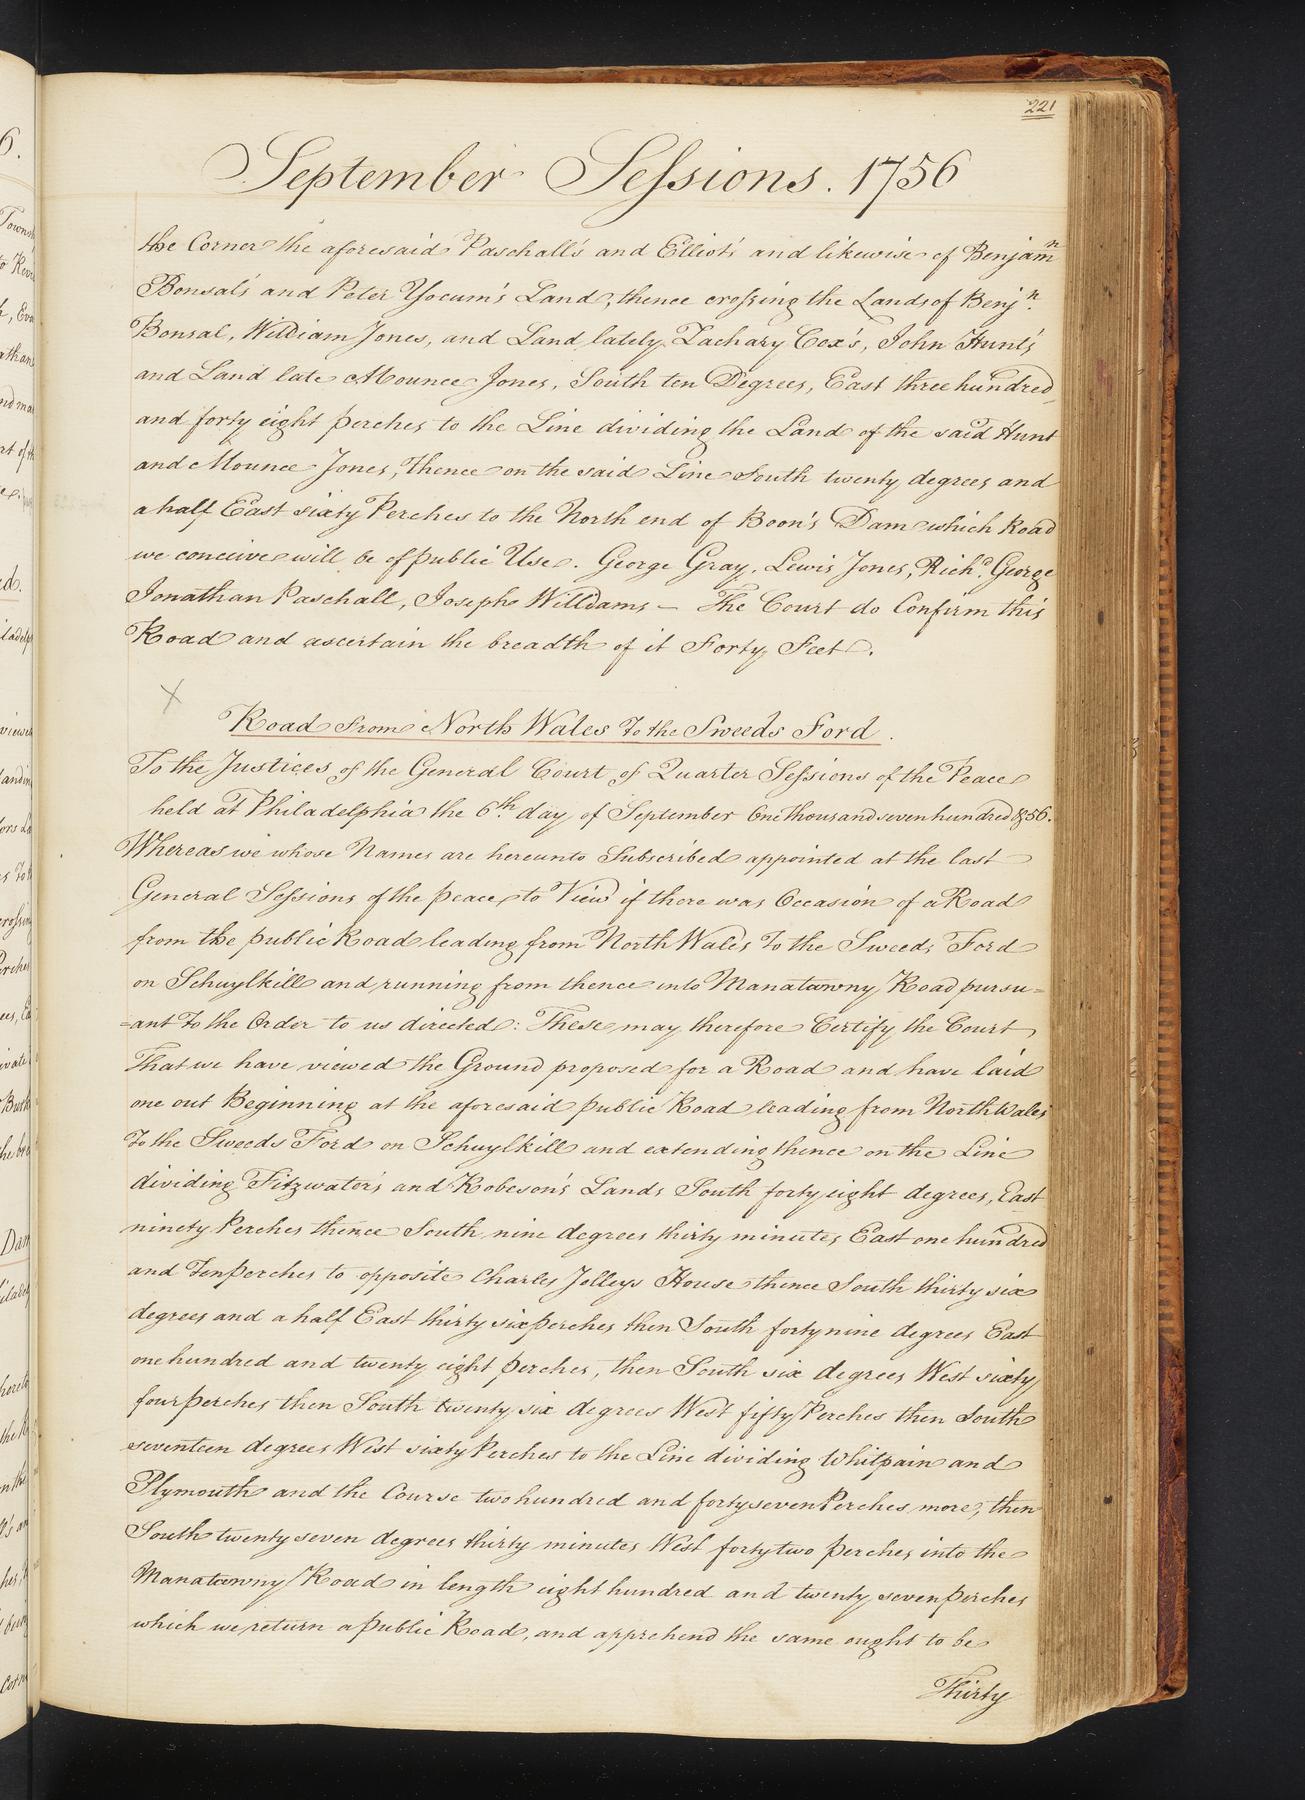 221
September Sessions. 1756
the Corner the aforesaid Paschall's and Elliot's and likewise of Benjamn
Bonsal's and Peter Yocum's Land, thence crossing the Lands of Benjn.
Bonsal, William Jones, and Land lately Zachary Cox's, John Hunt's
and Land late Mounce Jones, South ten Degrees, East three hundred
and forty eight perches to the Line dividing the Land of the said Hunt
and Mounce Jones, Thence on the said Line South twenty degrees and
a half East sixty Perches to the North end of Boon's Dam which Road
we conceive will be of public Use. George Gray, Lewis Jones, Richd. George
Jonathan Paschall, Joseph Williams — The Court do Confirm this
Road and ascertain the breadth of it Forty Feet.
X
Road From North Wales To the Sweeds Ford.
To the Justices of the General Court of Quarter Sessions of the Peace
held at Philadelphia the 6th. day of September One thousand seven hundred & 56.
Whereas we whose Names are hereunto Subscribed appointed at the last
General Sessions of the peace to View if there was Occasion of a Road
from the public Road leading from North Wales To the Sweeds Ford
on Schuylkill and running from thence into Manatawny Road pursu=
=ant To the Order to us directed: These may therefore Certify the Court
That we have viewed the Ground proposed for a Road and have laid
one out Beginning at the aforesaid public Road leading from North Wales
To the Sweeds Ford on Schuylkill and extending thence on the Line
dividing Fitzwater's and Robeson's Lands South forty eight degrees, East
ninety Perches thence South nine degrees thirty minutes East one hundred
and Ten perches to opposite Charles Jolleys House thence South thirty six
degrees and a half East thirty six perches then South forty nine degrees East
one hundred and twenty eight perches, then South six degrees West sixty
four perches then South twenty six degrees West fifty Perches then South
seventeen degrees West sixty Perches to the Line dividing Whitpain and
Plymouth and the Course two hundred and forty seven Perches more, then
South twenty seven degrees thirty minutes West forty two perches into the
Manatawny Road in length eight hundred and twenty seven perches
which we return a public Road, and apprehend the same ought to be
Thirty